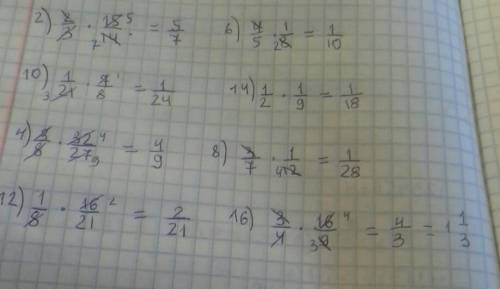 2) 2/3 · 15/14 = 5/7   6) 4/5 · 1/8 = 1/10
10) 1/21 · 7/8 = 1/24   14) 1/2 · 1/9 = 1/18
4) 3/8 · 32/27 = 4/9   8) 3/7 · 1/12 = 1/28
12) 1/8 · 16/21 = 2/21   16) 3/4 · 16/9 = 4/3 = 1 1/3